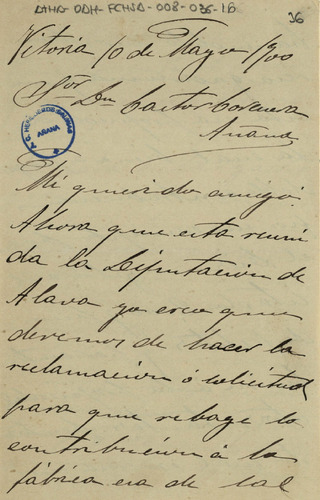 ATHA-DDH-FCHSA-008-036-16
36
Vitoria 10 de Mayo 1900
Sor Dn Castor Corcuera
Añana
T. G. HEREDEROS SALINAS
AÑANA
Mi querido amigo:
Ahora que esta reuni
da la Diputacion de
Alava yo creo que
devemos de hacer la
reclamacion ó solicitud
para que rebage la
contribucion á la
fábrica era de sal